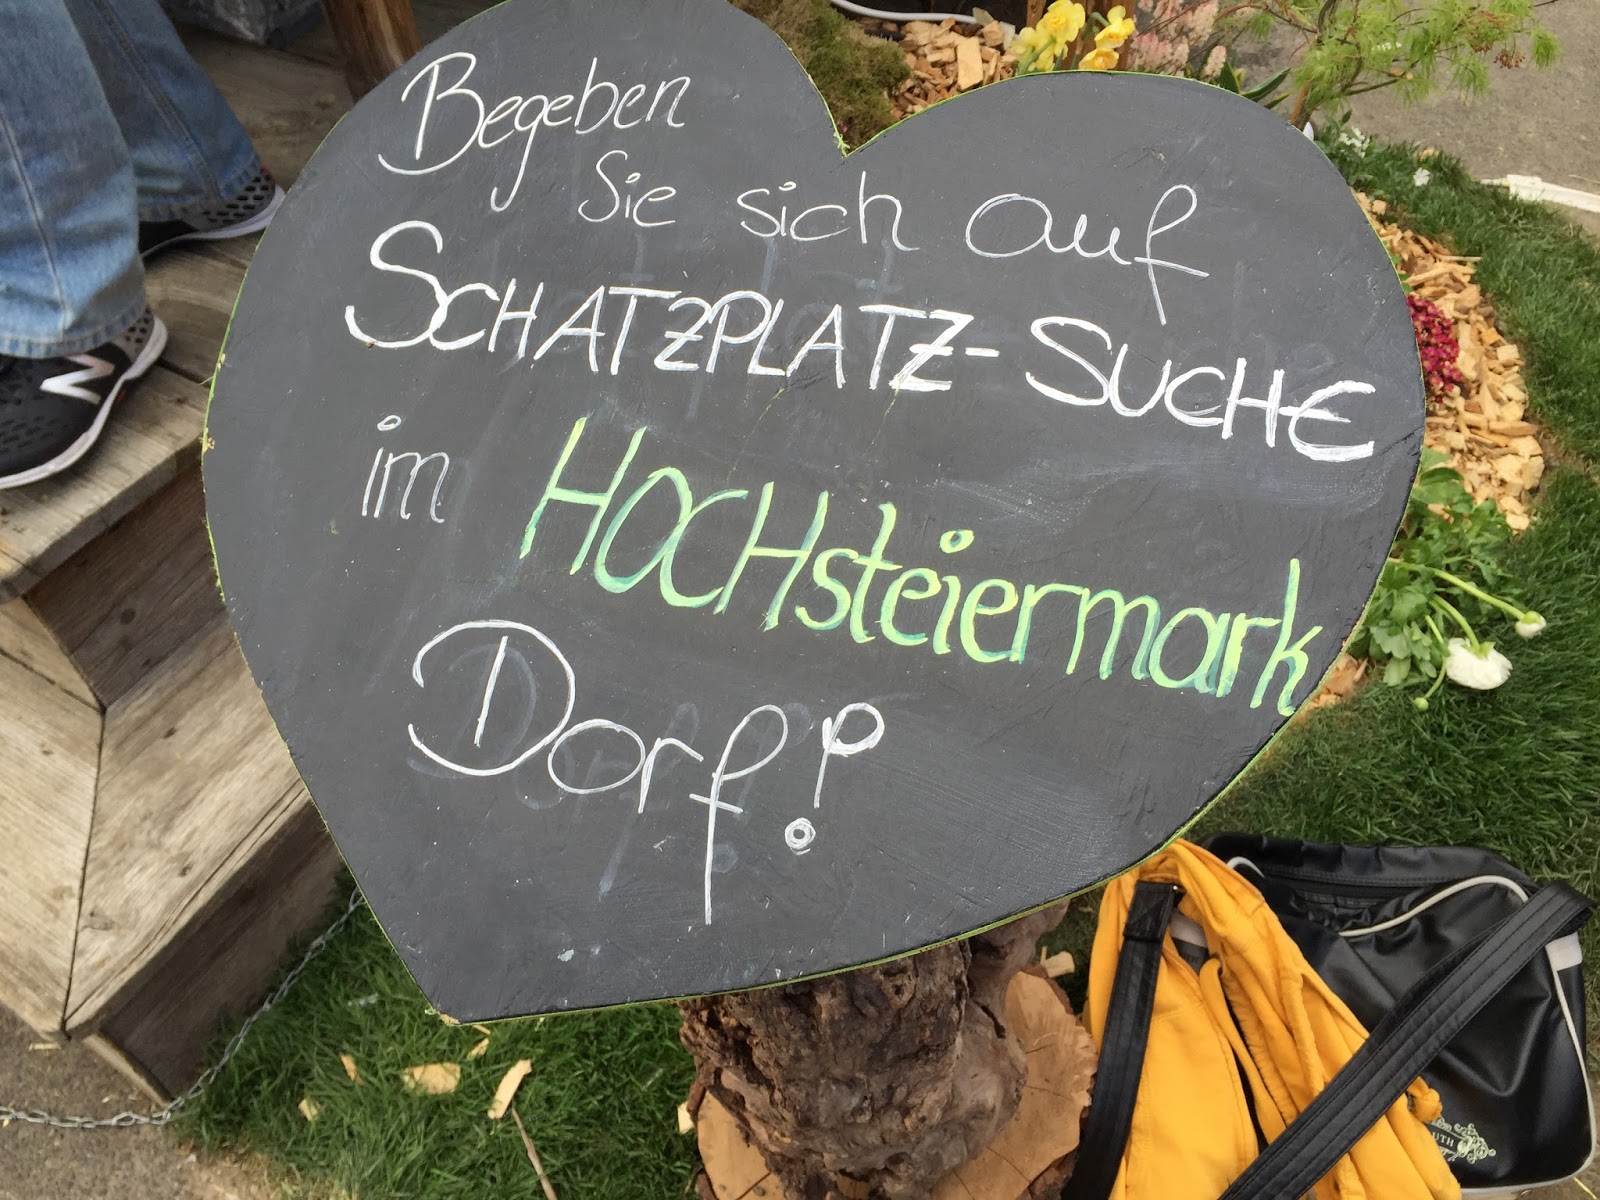 Begeben
Sie sich auf
SCHATZPLATZ-SUCHE
im HOCHsteiermark
Dorf!